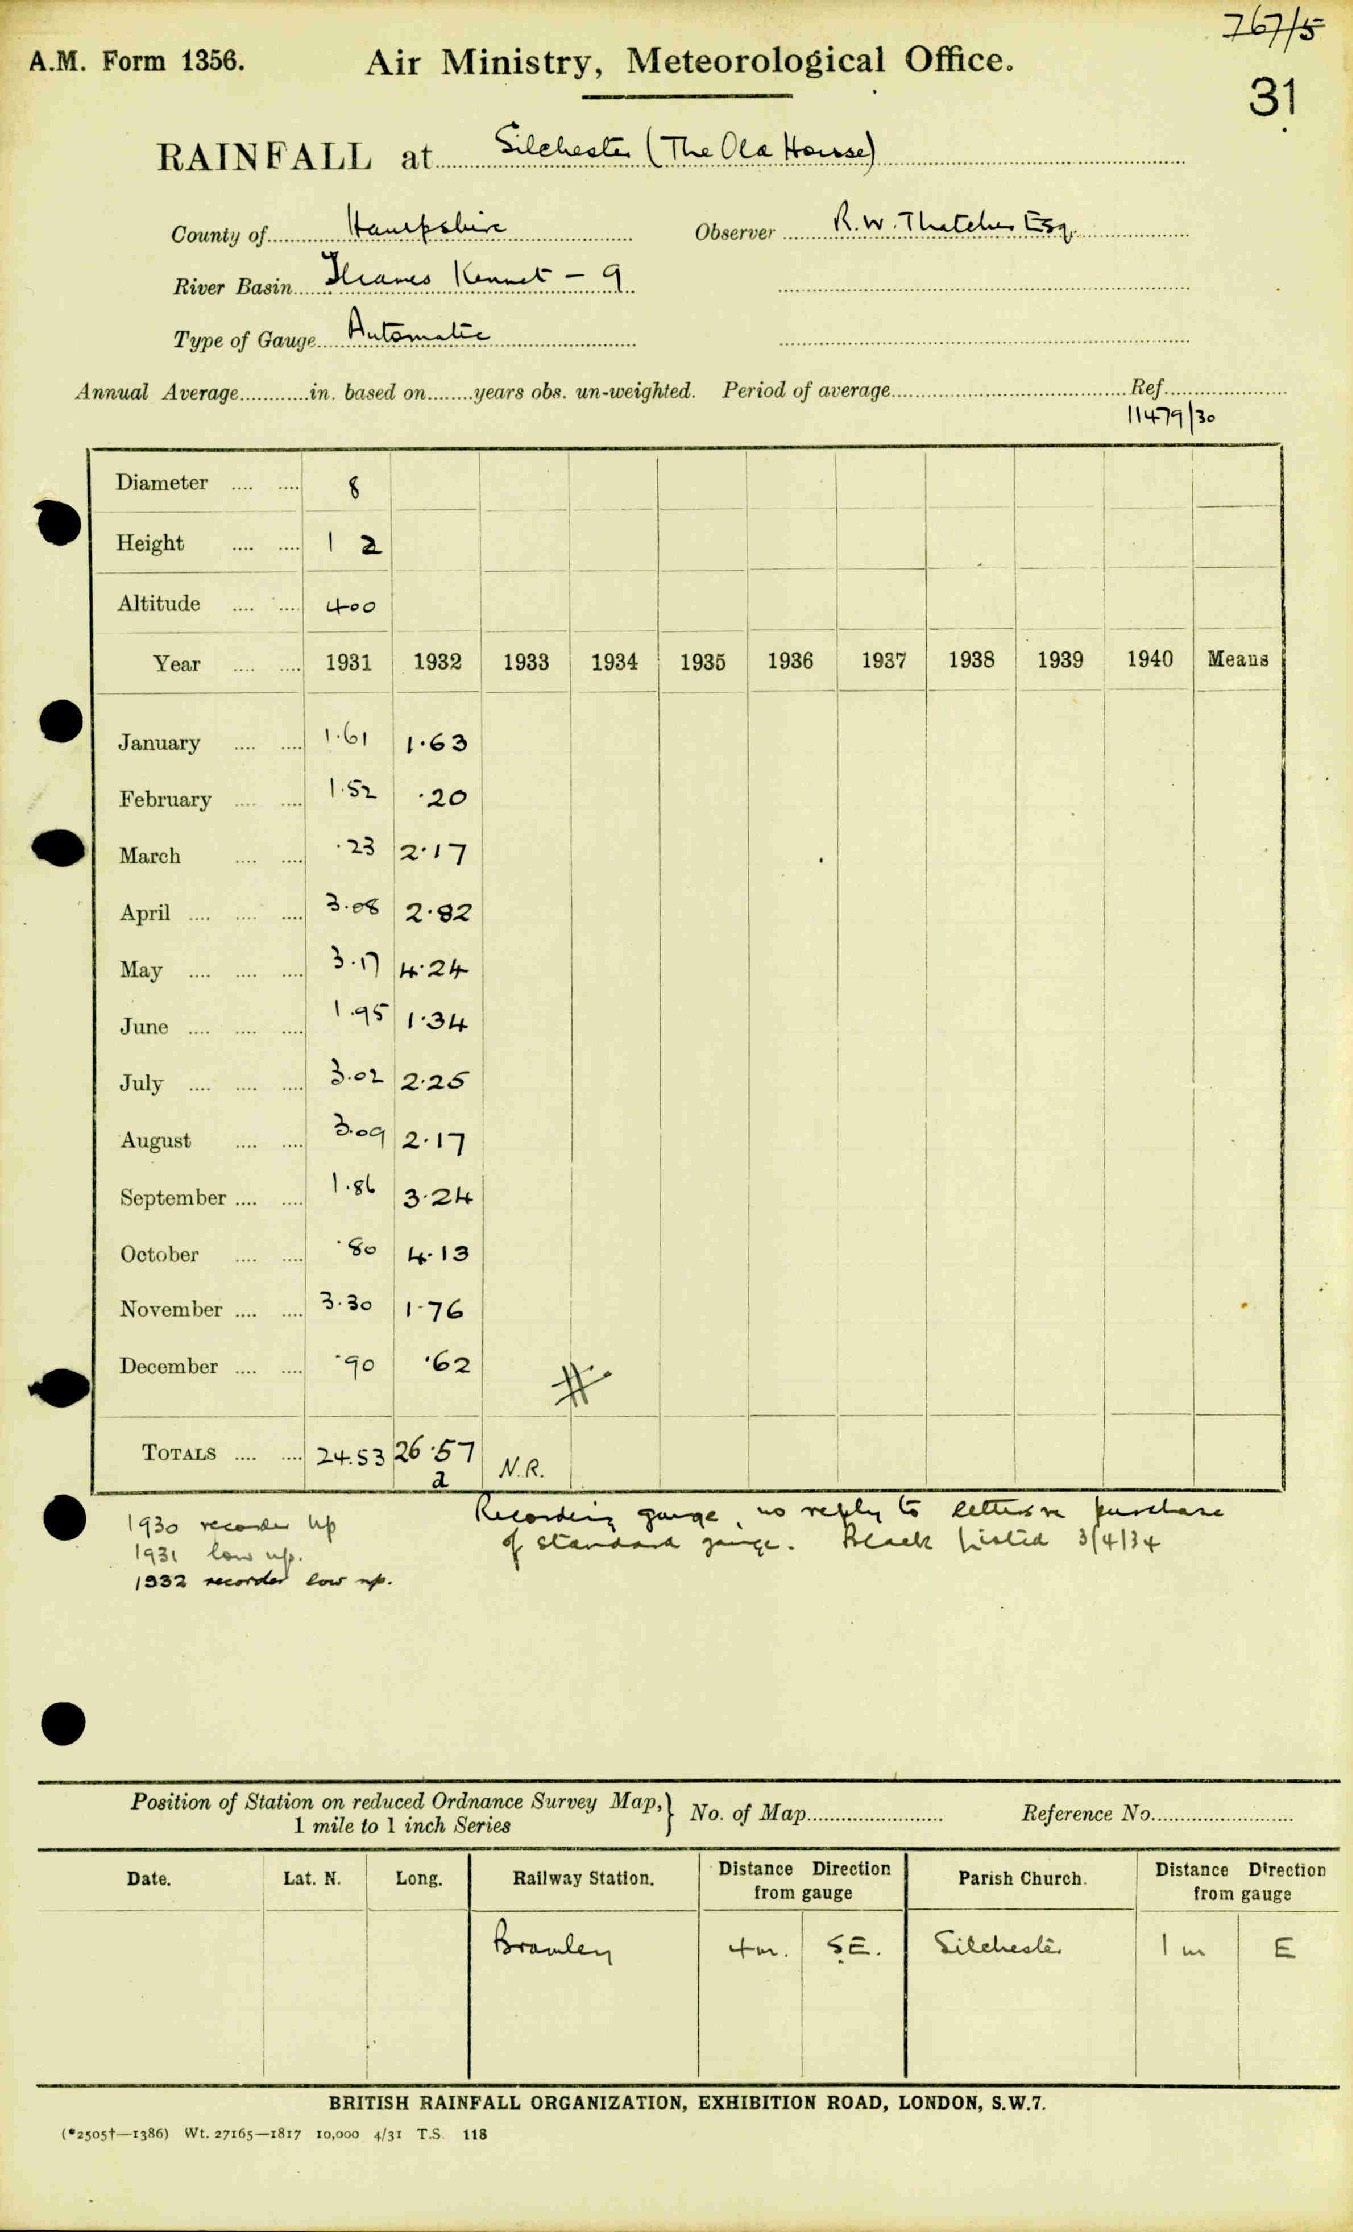 767/5
A.M. Form 1356. Air Ministry, Meteorological Office.
31
RAINFALL at Silchester (The Old House)
County of Hampshire Observer R.W. Thatcher Esq.
River Basin Thames Kennet - 9
Type of Gauge Automatic
Annual Average............in. based on........years obs. un-weighted. Period of average........................................Ref.....................
11479/30
Diameter .... .... 8
Height .... .... 1 2
Altitude .... .... 400
Year .... .... 1931 1932 1933 1934 1935 1936 1937 1938 1939 1940 Means
January .... .... 1.61 1.63
February .... .... 1.52 .20
March .... .... .23 2.17
April .... .... .... 3.08 2.82
May .... .... .... 3.17 4.24
June .... .... .... 1.95 1.34
July .... .... .... 3.02 2.25
August .... .... 3.09 2.17
September .... .... 1.86 3.24
October .... .... .80 4.13
November .... .... 3.30 1.76
December .... .... .90 .62
TOTALS .... .... 24.53 26.57 N.R.
a
Recording gauge, no reply to letters re purchase
of standard gauge. Black Listed 3/4/34
1930 recorder up
1931 low up.
1932 recorder low up.
Position of Station on reduced Ordnance Survey Map,} No. of Map........................ Reference No.........................
1 mile to 1 inch Series
Date. Lat. N. Long. Railway Station. Distance Direction from gauge Parish Church. Distance Direction from gauge
Bramley 4m. S.E. Silchester 1 m E
BRITISH RAINFALL ORGANIZATION, EXHIBITION ROAD, LONDON, S.W.7.
(*2505†—1386) Wt. 27165—1817 10,000 4/31 T.S. 118